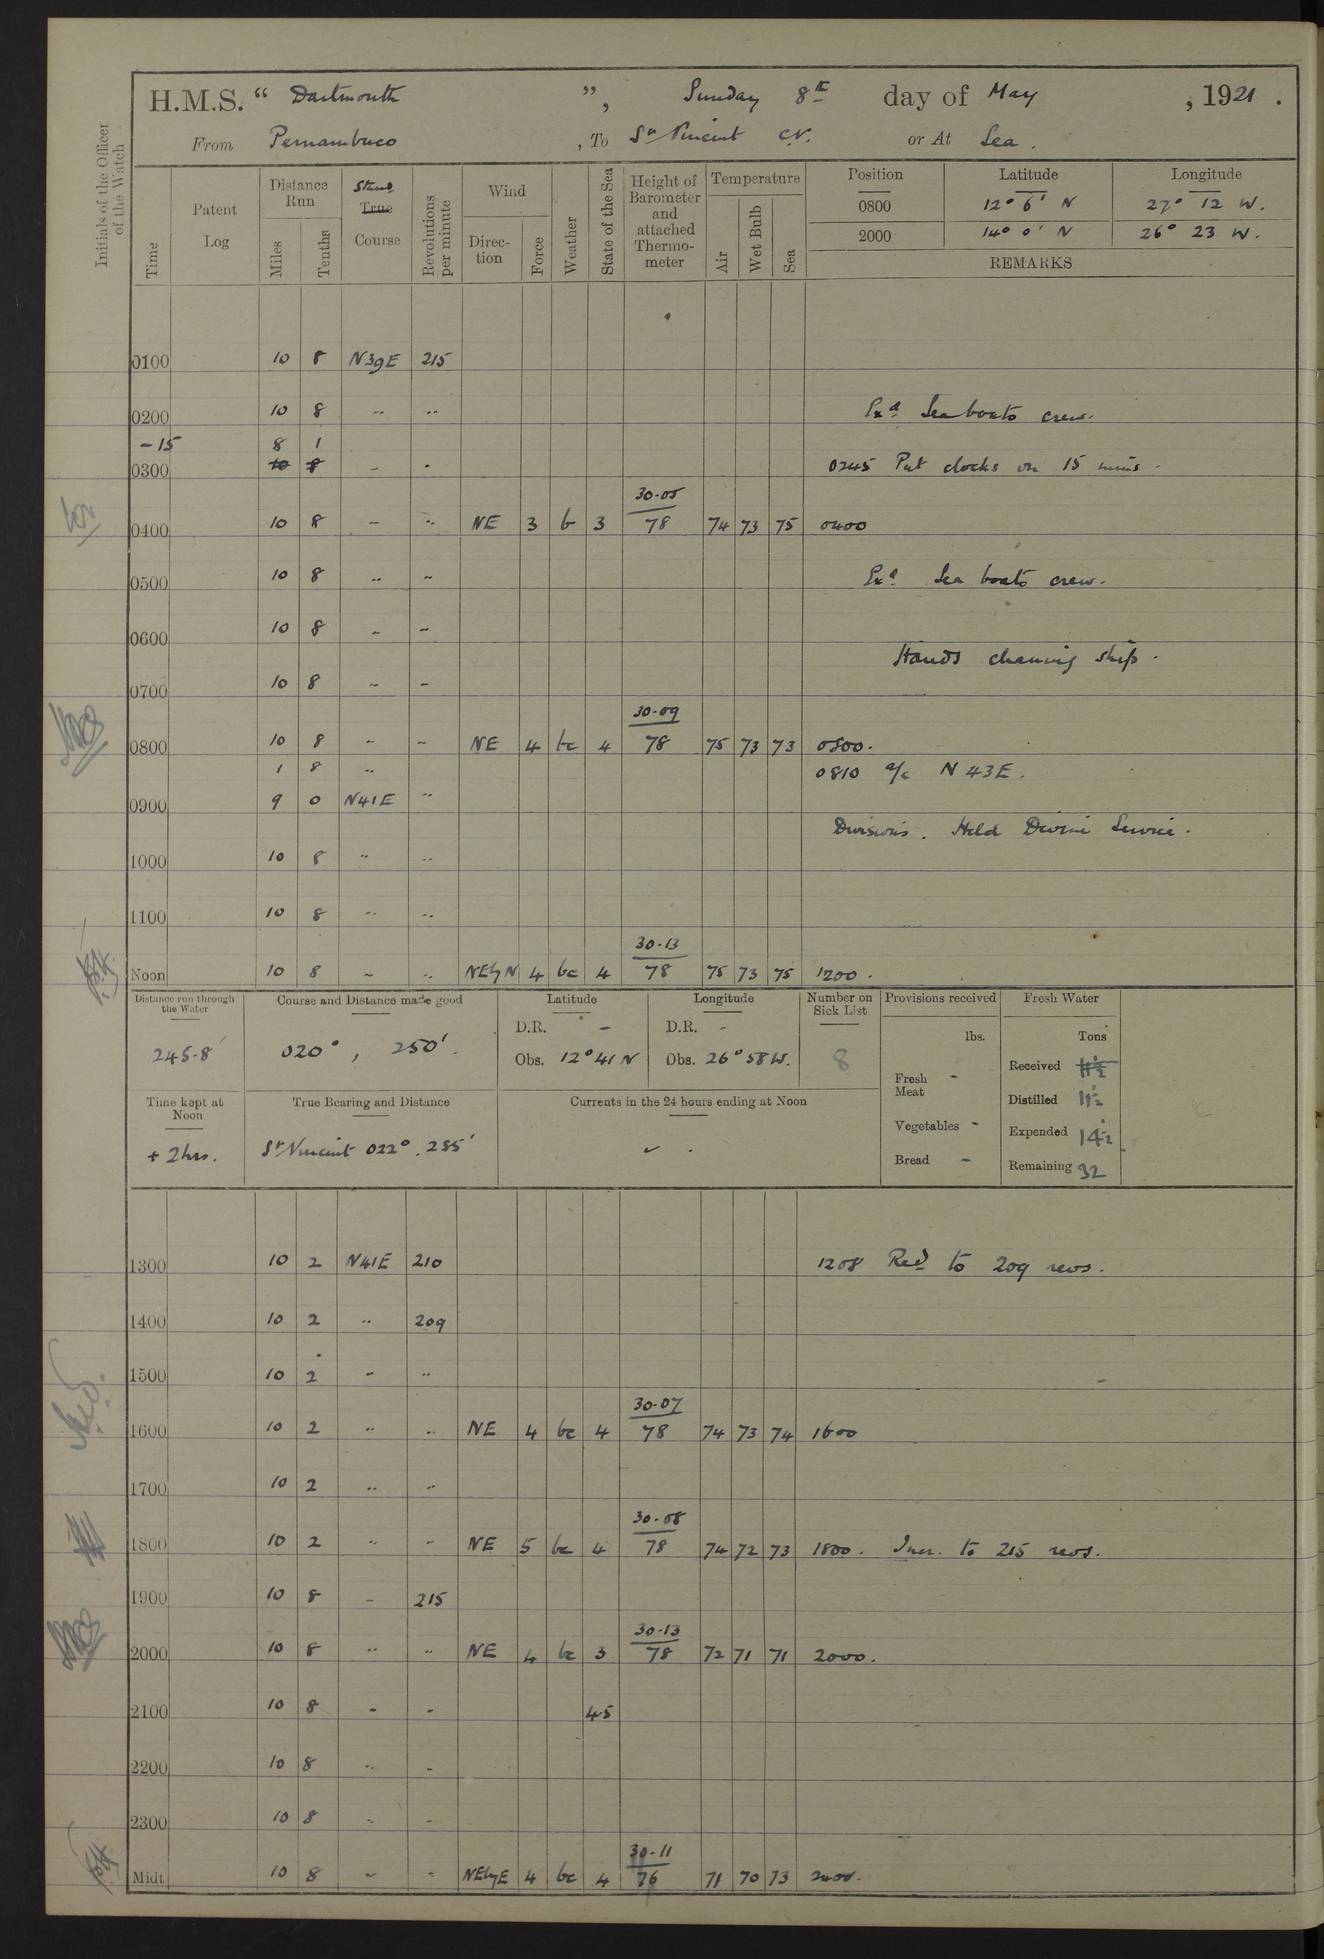 H.M.S. “ Dartmouth ”, Sunday 8th day of May , 1921 .
From Pernambuco , To St Vincent C.V. or At Sea .
Initials of the Officer of the Watch
Time Patent Log Distance Run Miles Tenths Stand True Course Revolutions per minute Wind Direc-tion Force Weather State of the Sea Height of Barometer and attached Thermo-meter Temperature Air Wet Bulb Sea Position Latitude Longitude
0800 12° 6' N 27° 12 W.
2000 14° 0' N 26° 23 W.
REMARKS
0100 10 8 N39E 215
0200 10 8 " " Exd Sea boats crew.
-15 8 1
0300 10 8 " " 0245 Put clocks on 15 mins.
30.05
0400 10 8 " " NE 3 b 3 78 74 73 75 0400
0500 10 8 " " Exd Sea boats crew.
0600 10 8 " "
Hands cleaning ship.
0700 10 8 " "
30.09
0800 10 8 " " NE 4 bc 4 78 75 73 73 0800.
1 8 " 0810 a/c N 43E.
0900 9 0 N41E "
Divisions. Held Divine Service.
1000 10 8 " "
1100 10 8 " "
30.13
Noon 10 8 " " NEbyN 4 bc 4 78 75 73 75 1200.
Distance run through the Water Course and Distance made good Latitude Longitude Number on Sick List Provisions received Fresh Water
D.R. - D.R. - lbs. Tons
245.8' 020°, 250'. Obs. 12° 41 N Obs. 26° 58 W. 8 Received 11½
Fresh Meat - Distilled 11½
Time kept at Noon True Bearing and Distance Currents in the 24 hours ending at Noon
Vegetables - Expended 14½
+ 2 hrs. St Vincent 022°. 285' Bread - Remaining 32
1300 10 2 N41E 210 1208 Red to 209 revs.
1400 10 2 " 209
1500 10 2 " "
30.07
1600 10 2 " " NE 4 bc 4 78 74 73 74 1600
1700 10 2 " "
30.08
1800 10 2 " " NE 5 bc 4 78 74 72 73 1800. Incr. to 215 revs.
1900 10 8 " 215
30.13
2000 10 8 " " NE 4 bc 3 78 72 71 71 2000.
2100 10 8 " " 45
2200 10 8 " "
2300 10 8 " "
30.11
Midt 10 8 " " NEbyE 4 bc 4 76 71 70 73 2400.